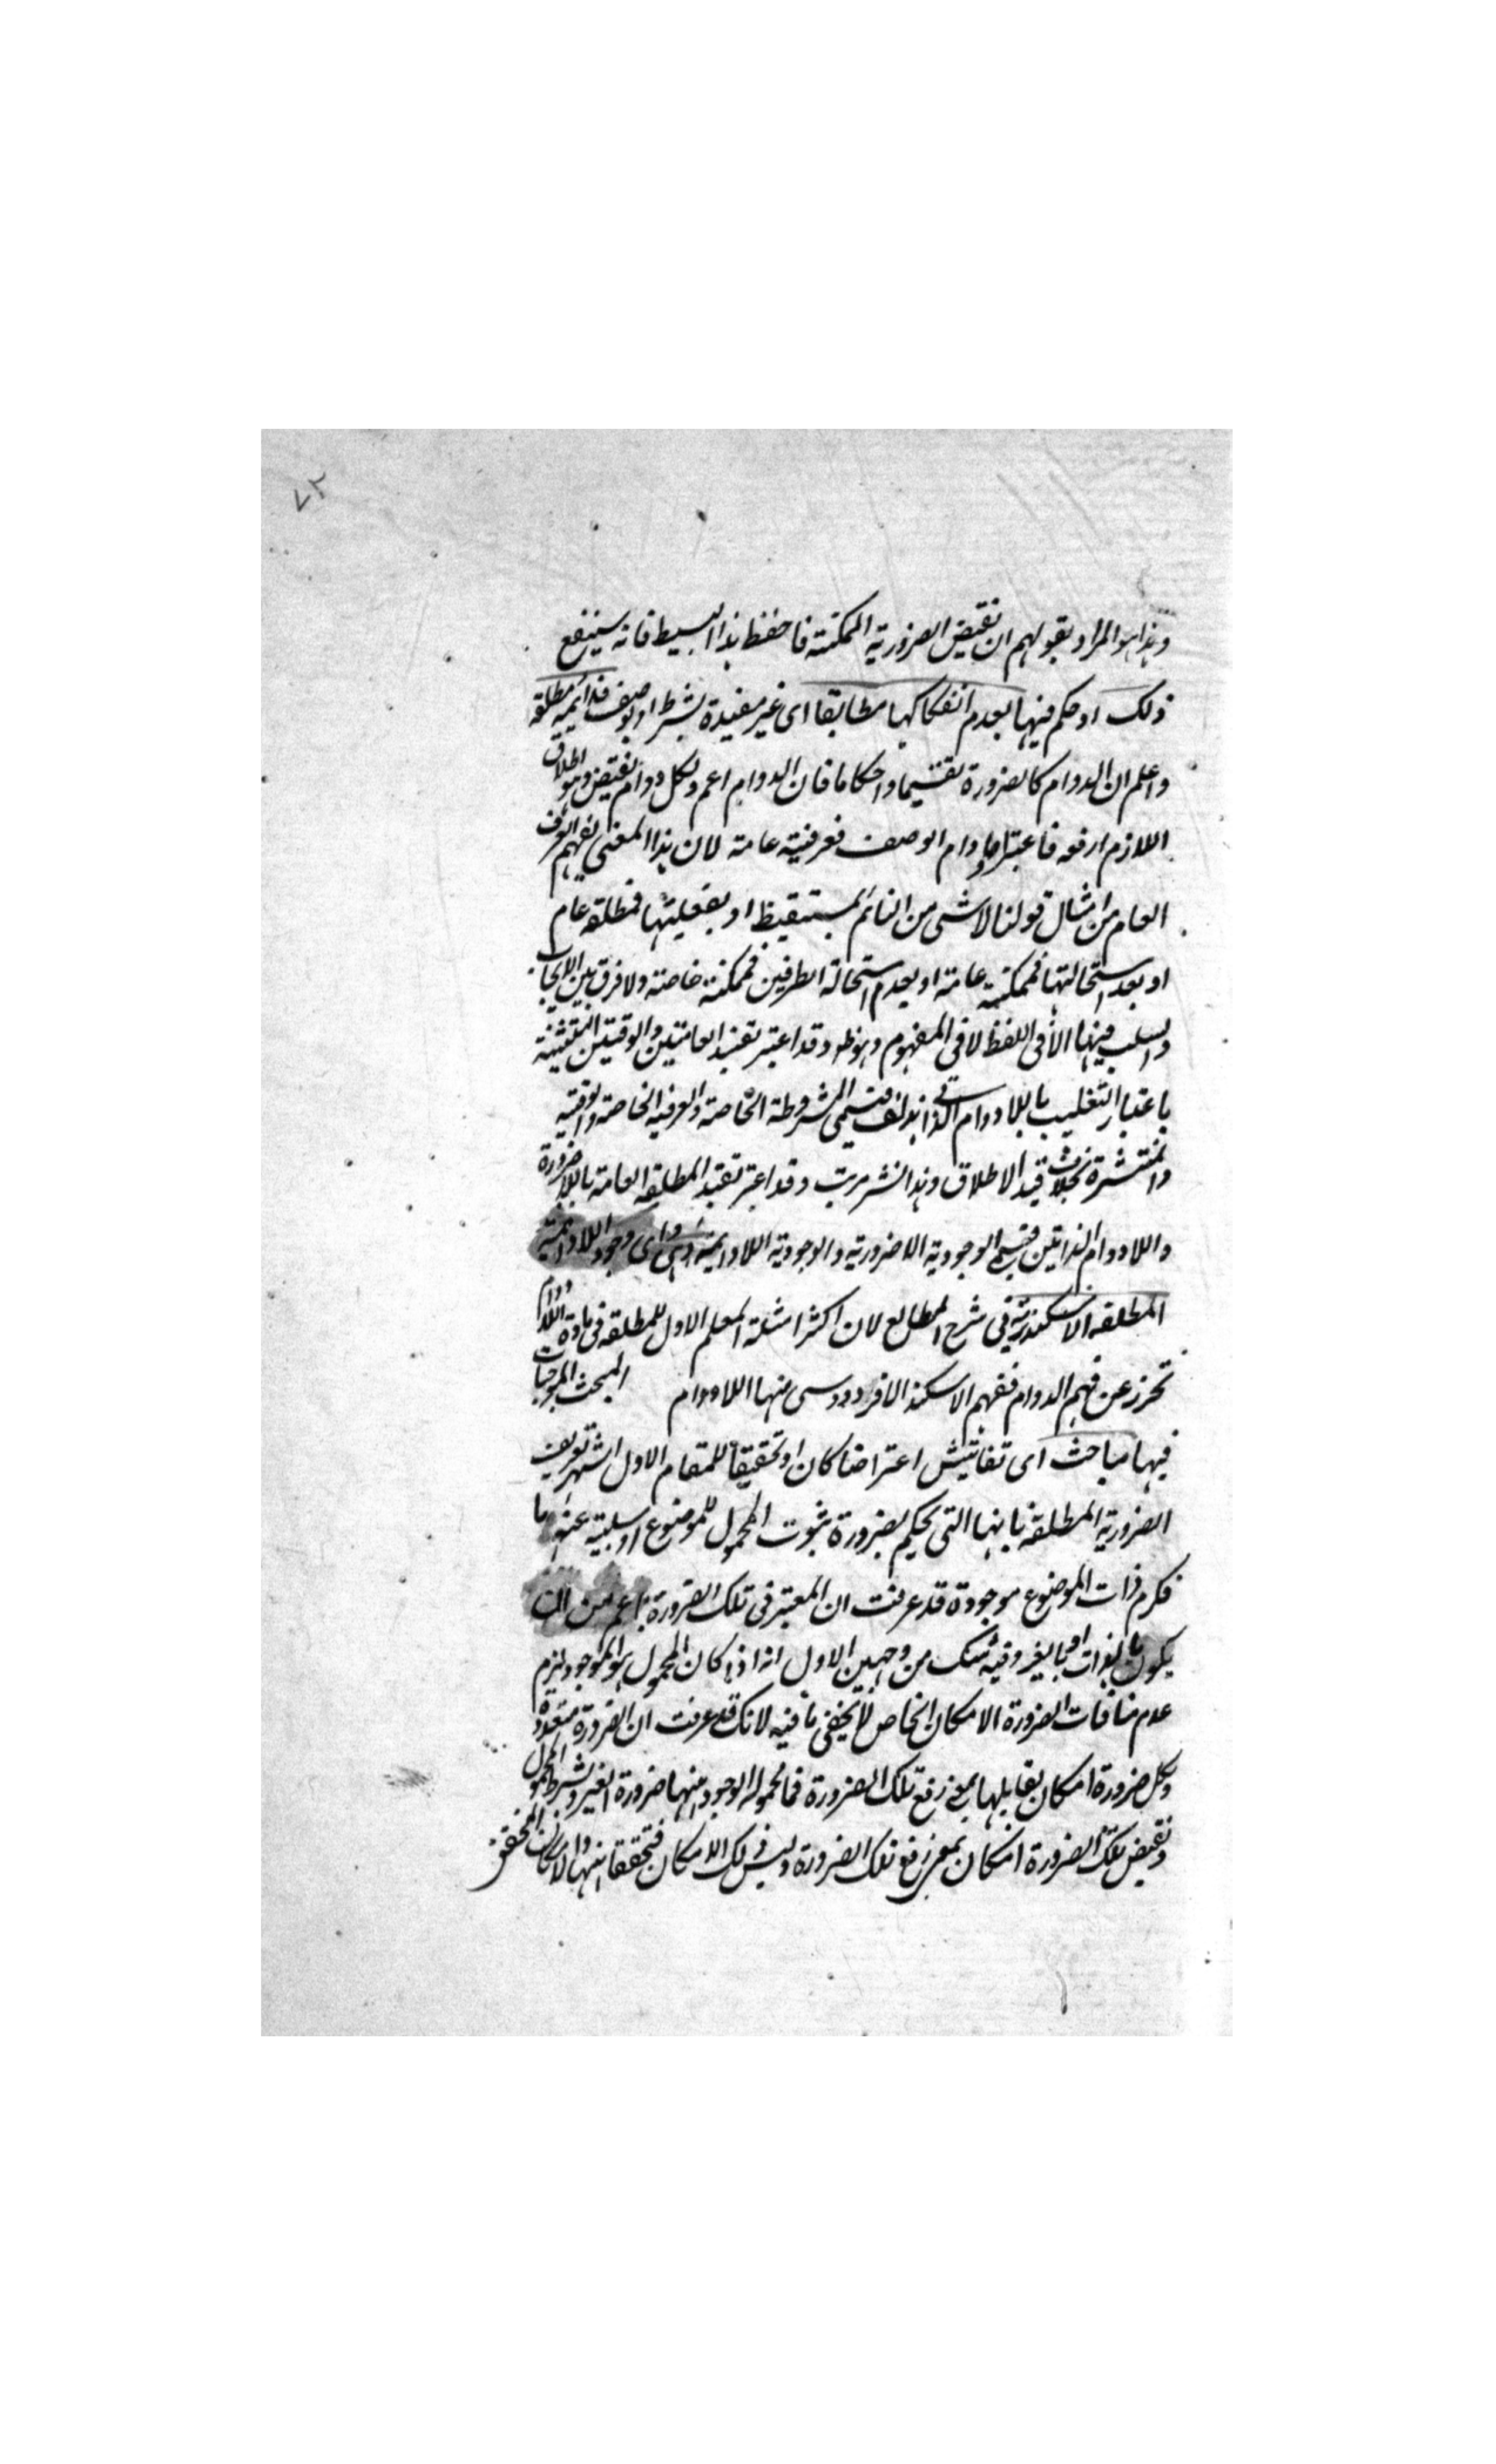 ٧٢
وهذا هو المراد بقولهم ان نقيض الضرورية الممكنة فاحفظ هذا البسيط فانه سينفع
ذلك او حكم فيها بعدم انفكاكها مطابقا اى غير مقيدة بشرط او بوصف فدائمية مطلقة
واعلم ان الدوام كالضرورة تقسيما واحكاما فان الدوام اعم ولكل دوام نقيض وهو اطلاق
اللازم ارفعه فاعتبر مادام الوصف فعرفية عامة لان هذا المعنى يفهم العرف
العام من امثال قولنا لا شى من النائم بمستيقظ او بفعليتها فمطلقه عام
او بعدم استحالتها فممكنة عامة او بعدم استحالة الطرفين فممكنة خاصة ولا فرق بين الايجاب
والسلب فيها الا فى اللفظ لا فى المفهوم وهو ظ وقد اعتبر تقييد العامتين والوقتيتين
باعتبار التغليب باللادوام الذاتى فتسمى المشروطة الخاصة والعرفية الخاصة والوقتية
والمنتشرة بحذف قيد الاطلاق وهذا نشر مرتب وقد اعتبر تقييد المطلقه العامة باللاضرورة
واللادوام الذاتيين فتسمى الوجودية اللاضرورية والوجودية اللادايمة وهى اى وجود اللادايمة
المطلقه الاسكندرية فى شرح المطالع لان اكثر امثلة المعلم الاول للمطلقه فى مادة اللادوام
تحرز عن فهم الدوام ففهم الاسكندر الافردوسى منها اللادوام المبحث الموجبات
فيها مباحث اى تفاتيش اعتراضا كان او تحقيقا للمقام الاول اشتهر تعريف
الضرورية المطلقة بانها التى يحكم بضرورة ثبوت المحمول للموضوع او سلبية عنه ما
ذات الموضوع موجودة قد عرفت ان المعتبر فى تلك الضرورة اعم من ان
يكون بالذات او بالغير وفيه شك من وجهين الاول انه اذا كان المحمول هو الموجود لزم
عدم منافات الضرورة الامكان الخاص لا يخفى ما فيه لانك قد عرفت ان الضرورة متعددة
ولكل ضرورة امكان يقابلها بمعنى رفع تلك الضرورة فما محموله الوجود منها ضرورة الغير وبشرط المحمول
ونقيض تلك الضرورة امكان بمعنى رفع تلك الضرورة وليس ذلك الامكان فتحققا فيها والامكان المحقق